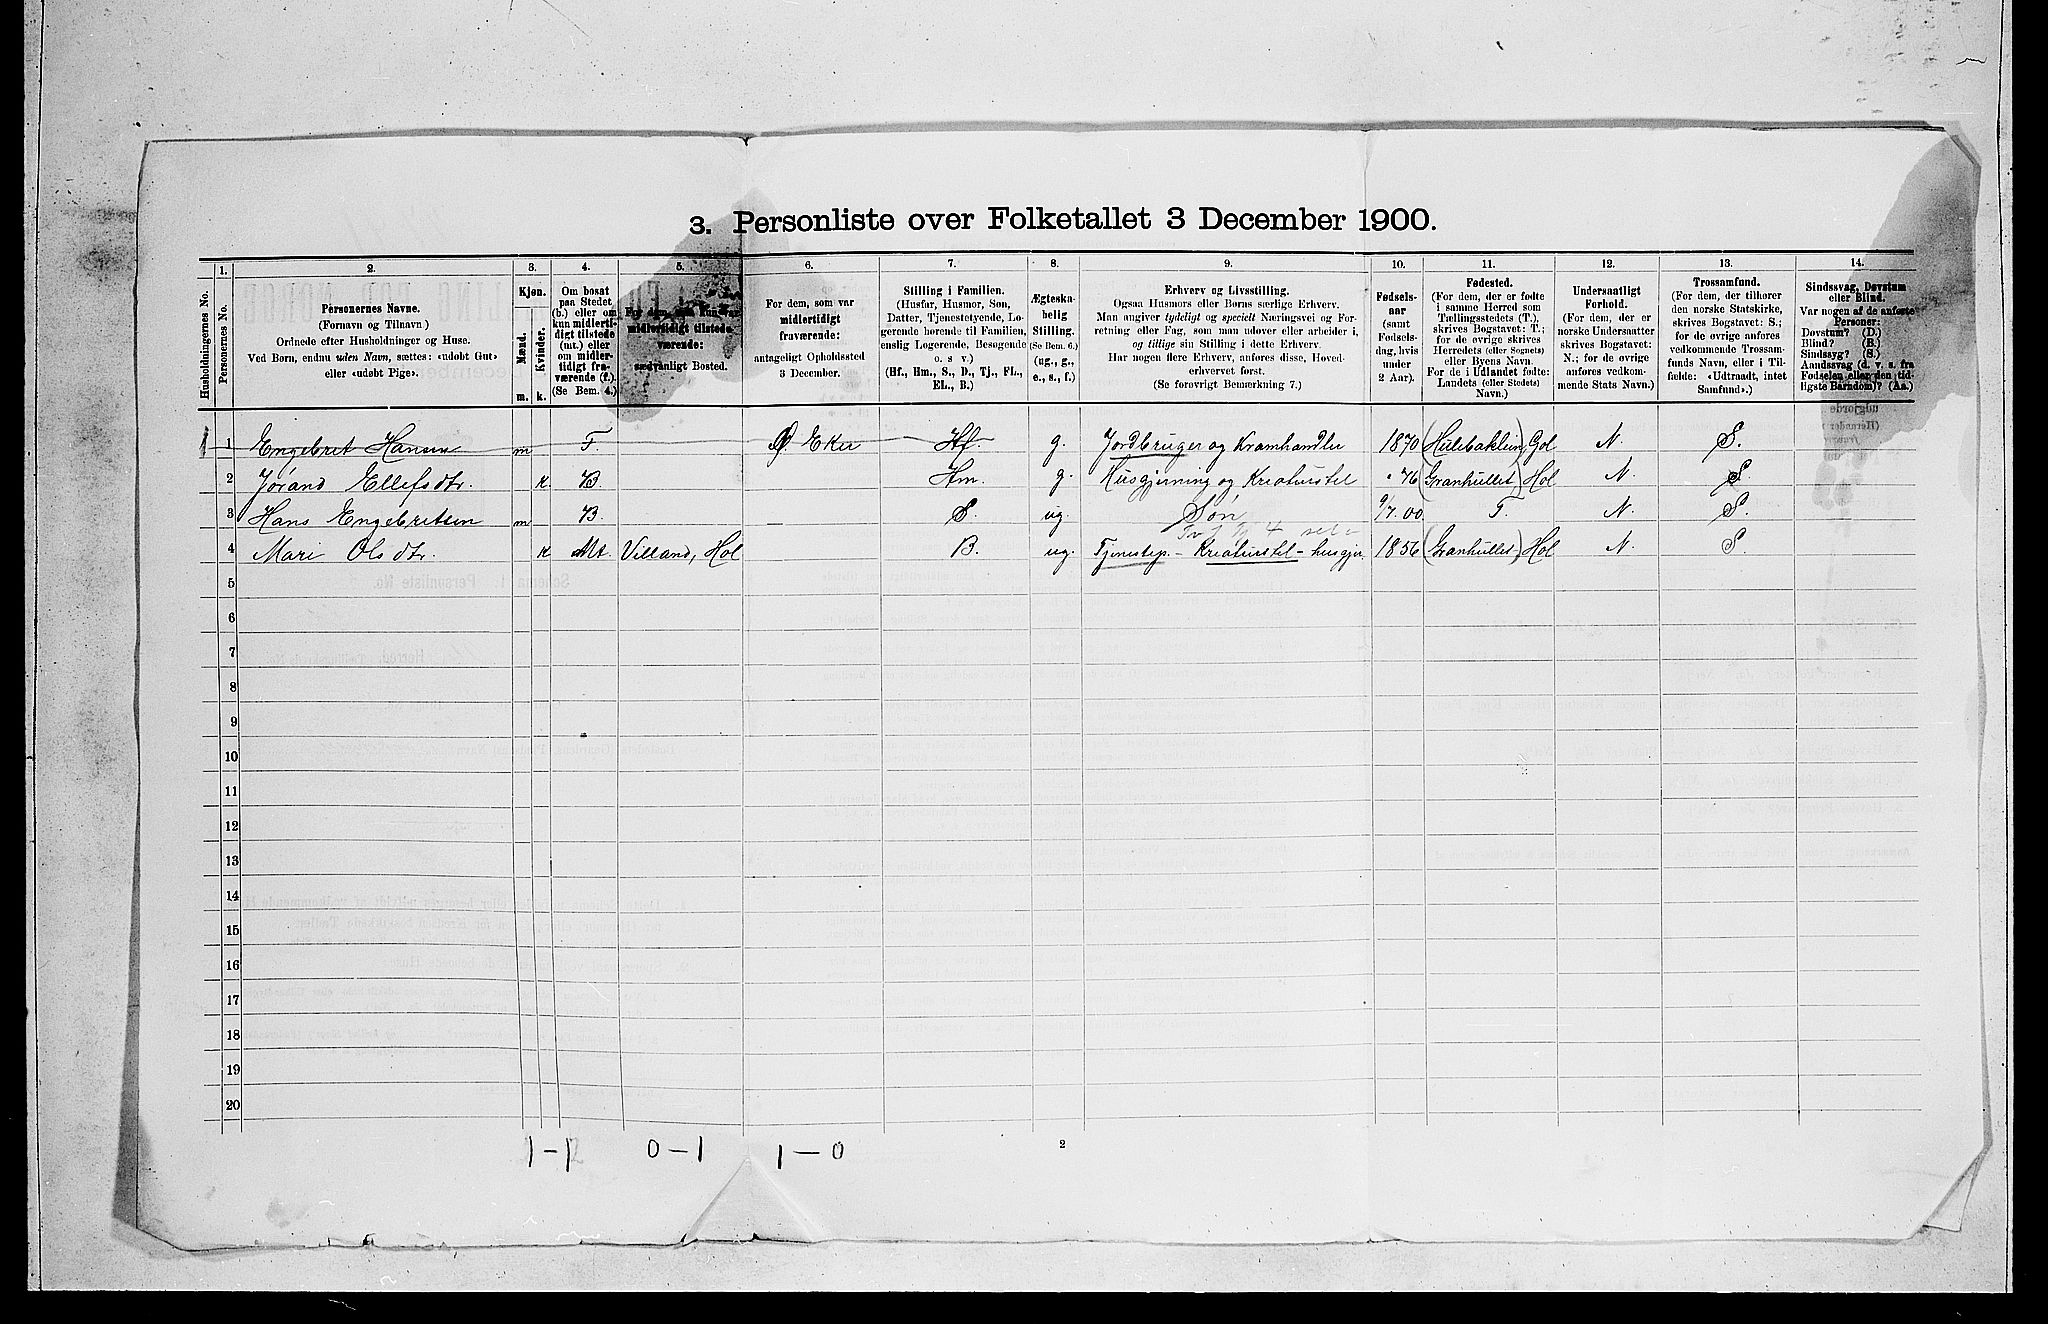 3. Personliste over Folketallet 3 December 1900.
Husholdningernes No.
1. Personernes No.
2. Personernes Navne.
(Fornavn og Tilnavn.)
Ordnede efter Husholdninger og Huse.
Ved Børn, endnu uden Navn, sættes: «udøbt Gut»
eller «udøbt Pige».
3. Kjøn.
Mænd. m.
Kvinder. k.
4. Om bosat
paa Stedet
(b.) eller om
kun midlerti-
digt tilstede
(mt.) eller
om midler-
tidigt fra-
værende (f.)
(Se Bem. 4.)
5. For dem, som kun var
midlertidigt tilstede-
værende:
sædvanligt Bosted.
6. For dem, som var
midlertidigt
fraværende:
antageligt Opholdssted
3 December.
7. Stilling i Familien.
(Husfar, Husmor, Søn,
Datter, Tjenestetyende, Lo-
gerende hørende til Familien,
enslig Logerende, Besøgende
o. s v.)
(Hf., Hm., S., D., Tj., FL.,
EL., B.)
8. Ægteska-
belig
Stilling.
(Se Bem. 6.)
(ug., g.,
e., s., f.)
9. Erhverv og Livsstilling.
Ogsaa Husmors eller Børns særlige Erhverv.
Man angiver tydeligt og specielt Næringsvei og For-
retning eller Fag, som man udøver eller arbeider i,
og tillige sin Stilling i dette Erhverv.
Har nogen flere Erhverv, anføres disse, Hoved-
erhvervet først.
(Se forøvrigt Bemærkning 7.)
10. Fødsels-
aar
(samt
Fødsels-
dag, hvis
under
2 Aar).
11. Fødested.
(For dem, der er fødte
i samme Herred som
Tællingsstedets (T.),
skrives Bogstavet: T.;
for de øvrige skrives
Herredets (eller Sognets)
eller Byens Navn.
For de i Udlandet fødte:
Landets (eller Stedets)
Navn.)
12. Undersaatligt
Forhold.
(For dem, der er
norske Undersaatter
skrives Bogstavet:
N.; for de øvrige
anføres vedkom-
mende Stats Navn.)
13. Trossamfund.
(For dem, der tilhører
den norske Statskirke,
skrives Bogstavet: S.;
for de øvrige anføres
vedkommende Trossam-
funds Navn, eller i Til-
fælde: «Udtraadt, intet
Samfund».)
14. Sindssvag, Døvstum
eller Blind.
Var nogen af de anførte
Personer:
Døvstum? (D.)
Blind? (B.)
Sindssyg? (S.)
Aandssvag (d. v. s. fra
Fødselen eller den tid-
ligste Barndom)? (Aa.)
1 1 Engebret Hansen m F. Ø. Eker Hf. g. Jordbruger og Kramhandler 1870 Gol N. S.
2 Jørand Ellefsdtr. k B. Hm. g. Husgjerning og Kreaturstel 76 (Granhullet) Hol N. S
3 Hans Engebretsen m B. S. ug. Søn 9/7.00. T. N. S.
4 Mari Olsdtr. k Mt. Villand, Hol B. ug. Tjenestep. - Kreaturstel - husgjer 1856 (Granhullet) Hol N. S.
5
6
7
8
9
10
11
12
13
14
15
16
17
18
19
20
1 - 1 0 - 1 1 - 0 2